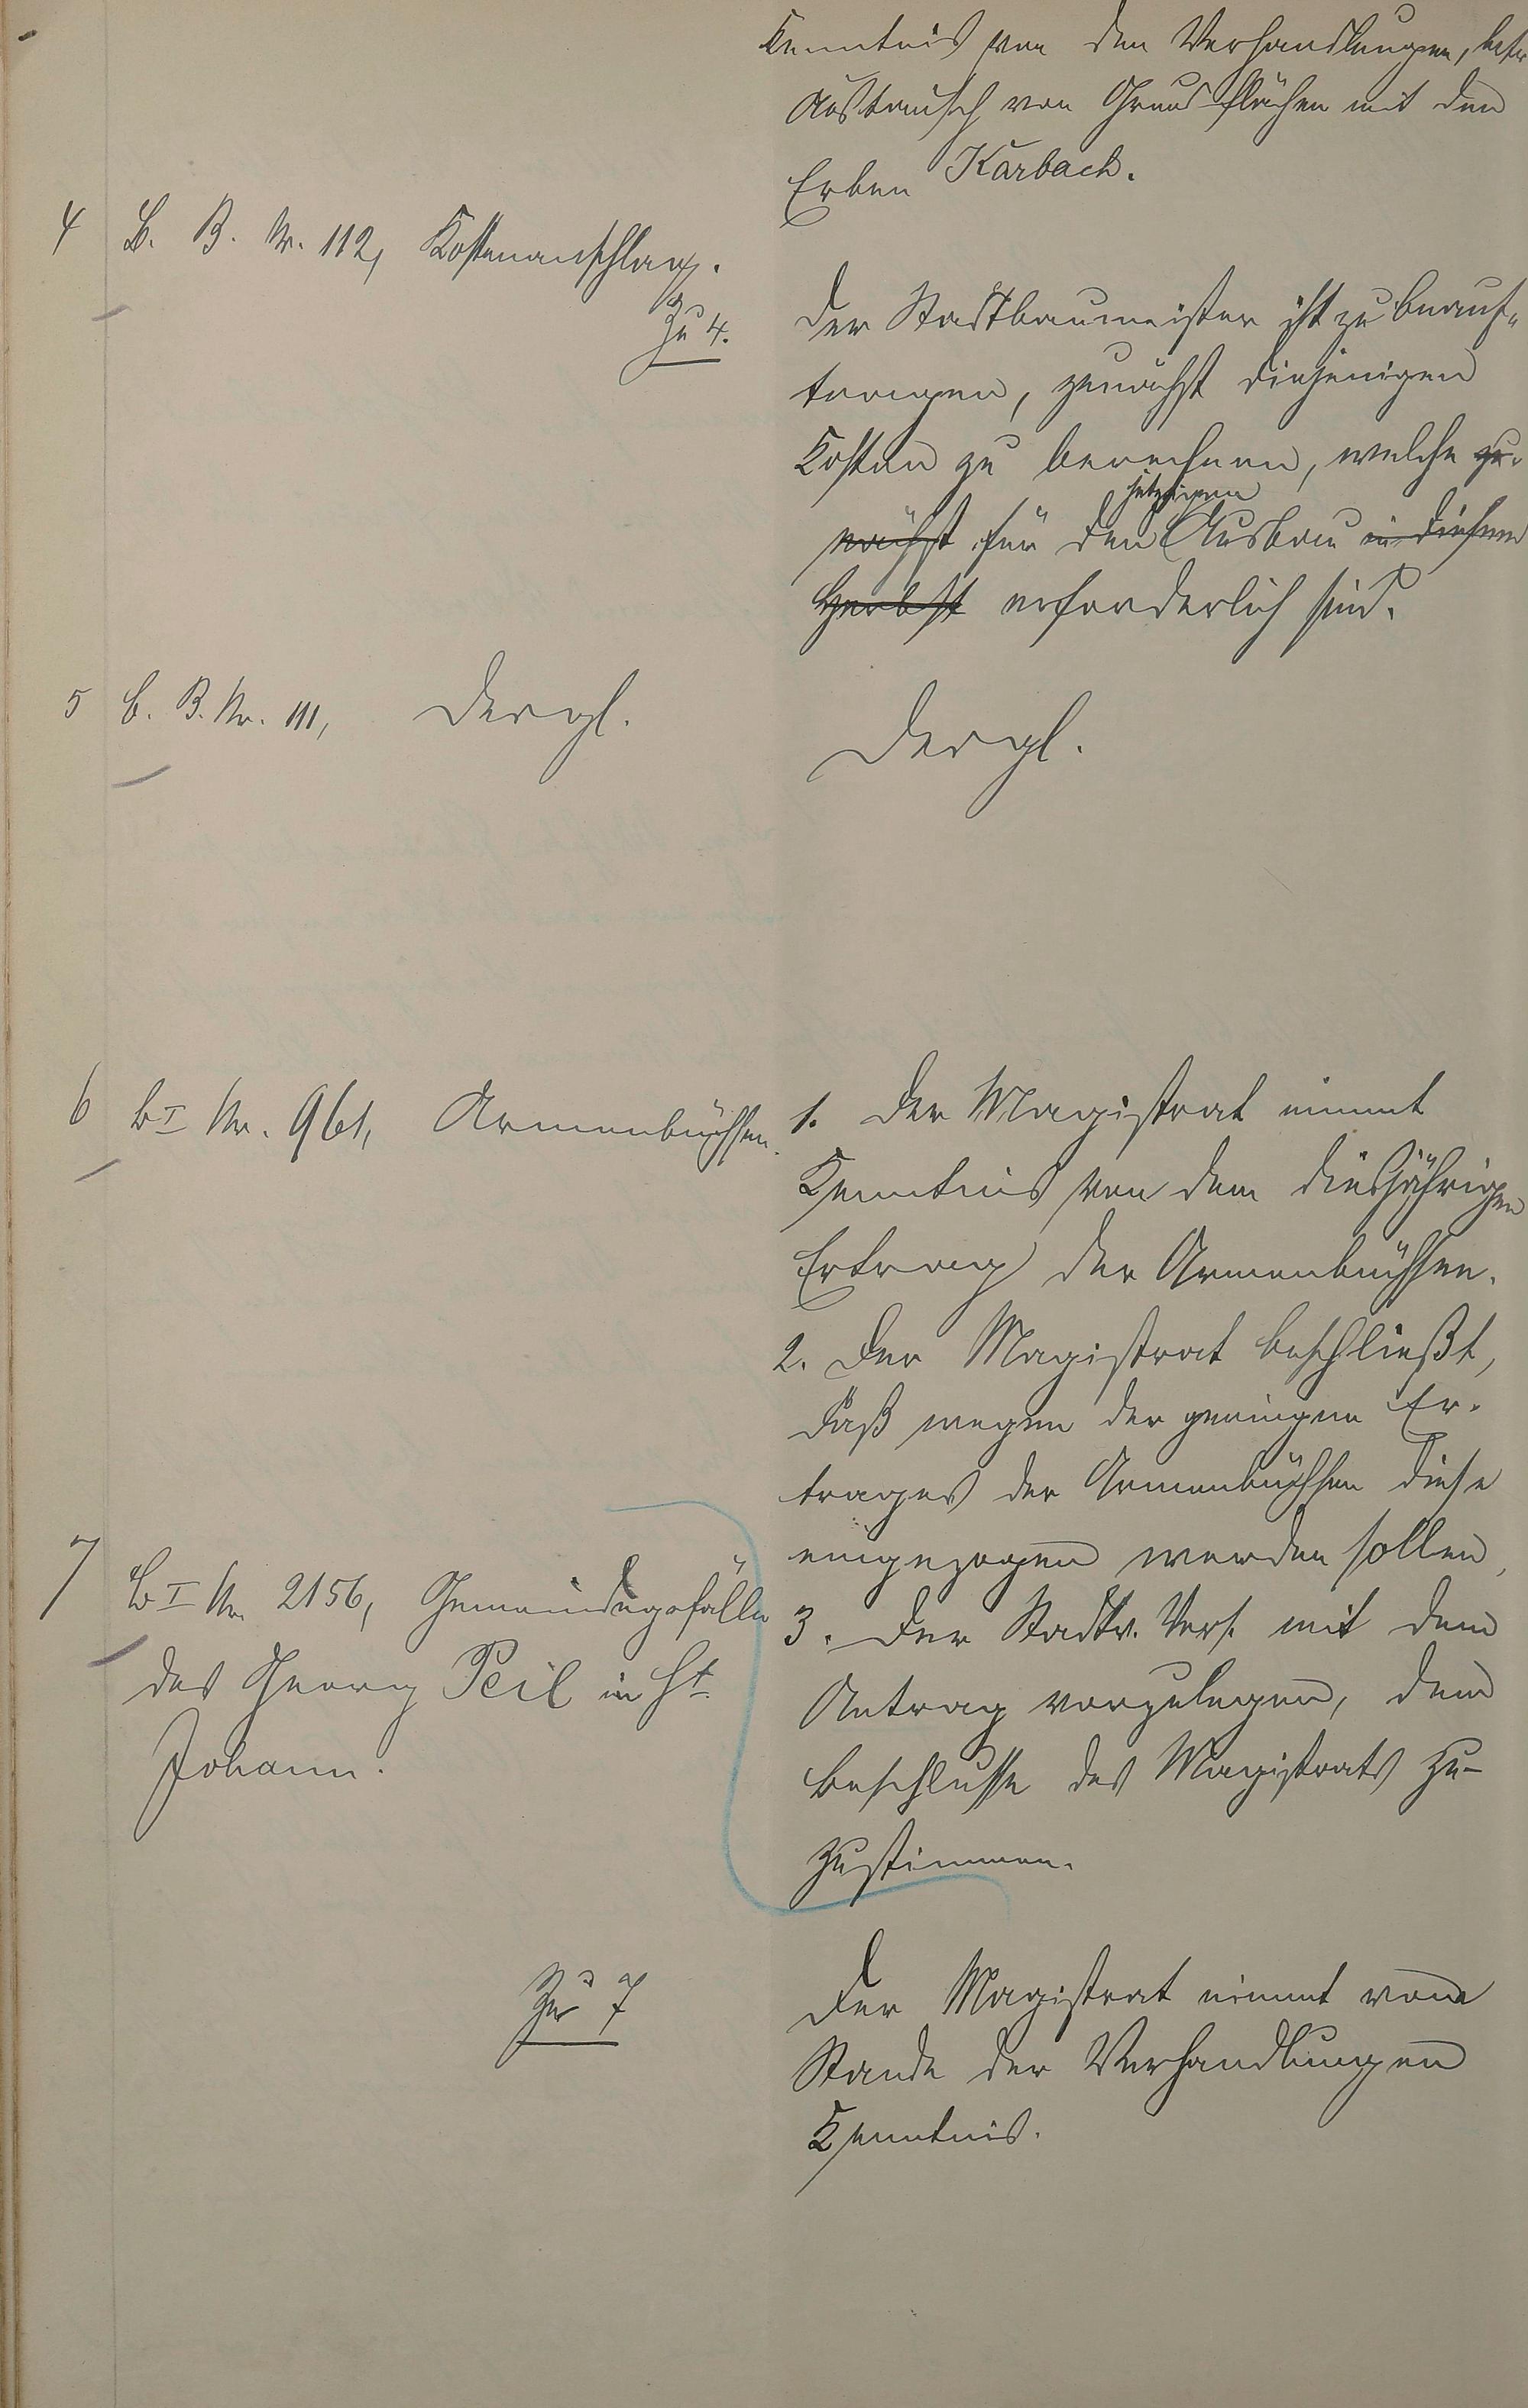 Kenntnis von den Verhandlungen, betr.
Austausch von Grundflächen mit den
Erben Karbach.
4 B. B. Nr. 112, Kostenanschlag.
Zu 4.
Der Stadtbaumeister ist zu beauf-
tragen, zunächst diejenigen
Kosten zu berechnen, welche zu-
nächst für den jetzigen Ausbau in diesem
Herbst erforderlich sind.
5 B. B. Nr. 111, Dergl.
Dergl.
6 b I Nr. 961, Armenbüchsen.
1. Der Magistrat nimmt
Kenntnis von dem diesjährigen
Ertrag der Armenbüchsen.
2. Der Magistrat beschließt,
daß wegen der geringen Er-
trages der Armenbüchsen diese
eingezogen werden sollen,
3. Der Stadtv. Vers. mit dem
Antrag vorzulegen, dem
Beschlusse des Magistrats zu-
zustimmen.
7 b I Nr. 2156, Gemeindegefälle
des Georg Peil in St.
Johann.
Zu 7
Der Magistrat nimmt vom
Stande der Verhandlungen
Kenntnis.